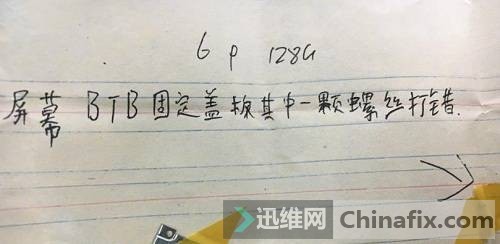 6 p 128G
屏幕 BTB固定盖板其中一颗螺丝打错.
迅维网 Chinafix.com